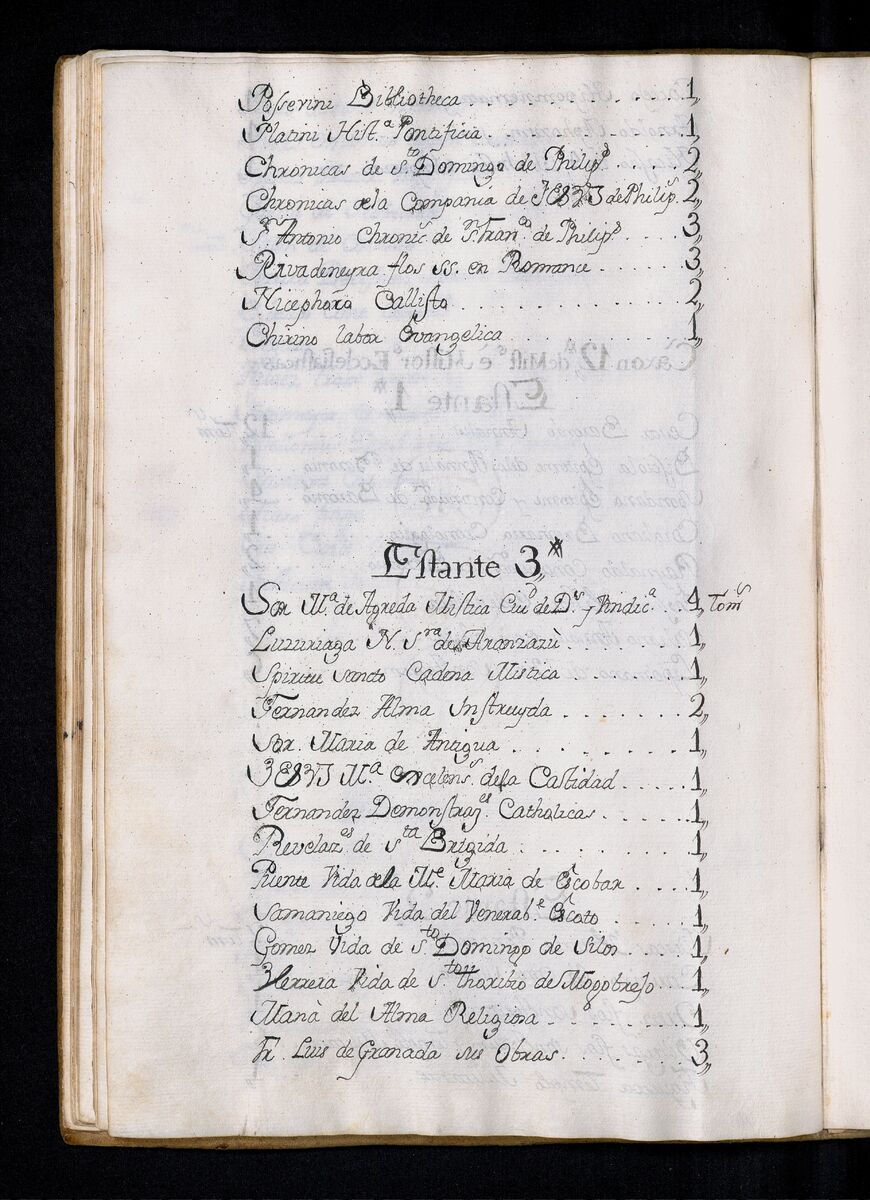 Posserini Bibliotheca . . . . . . . . . . 1,,
Platini Hist.ª Pontificia . . . . . . . . . 1,,
Chronicas de S.to Domingo de Philip.s 2,,
Chronicas de la Compania de JESUS de Philip.s 2,,
S.n Antonio Chronic.s de S.n Fran.co de Philip.s . . . . 3,,
Rivadeneyra flos SS. en Romance . . . . . 3,,
Nicephoro Callisto . . . . . . . . . . . . 2,,
Chirino labor Evangelica . . . . . . . . . . 1,,
Estante 3,,*
Sor M.ª de Agreda Mistica Ciu.d de D.s y Vindic.ª . 4,, Tom.s
Luzuriaga N. S.ra de Aranzazù . . . . . . . . 1,,
Spiritu Sancto Cadena Mistica . . . . . . . 1,,
Fernandez Alma Instruyda . . . . . . . 2,,
Sor. Maria de Antigua . . . . . . . . 1,,
JESUS M.ª Excelenc.s de la Castidad . . . . 1,,
Fernandez Demonstraz.es Catholicas . . . . . 1,,
Revelaz.es de S.ta Brigida . . . . . . . . . 1,,
Puente Vida de la M.e Maria de Escobar . . . . 1,,
Samaniego Vida del Venerab.e Escoto . . . . 1,,
Gomez Vida de S.to Domingo de Silos . . . . 1,,
Herrera Vida de S.to Thoribio de Mogobrejo . . 1,,
Manà del Alma Religiosa . . . . . . . . . 1,,
Fr. Luis de Granada sus Obras . . . . . . . 3,,